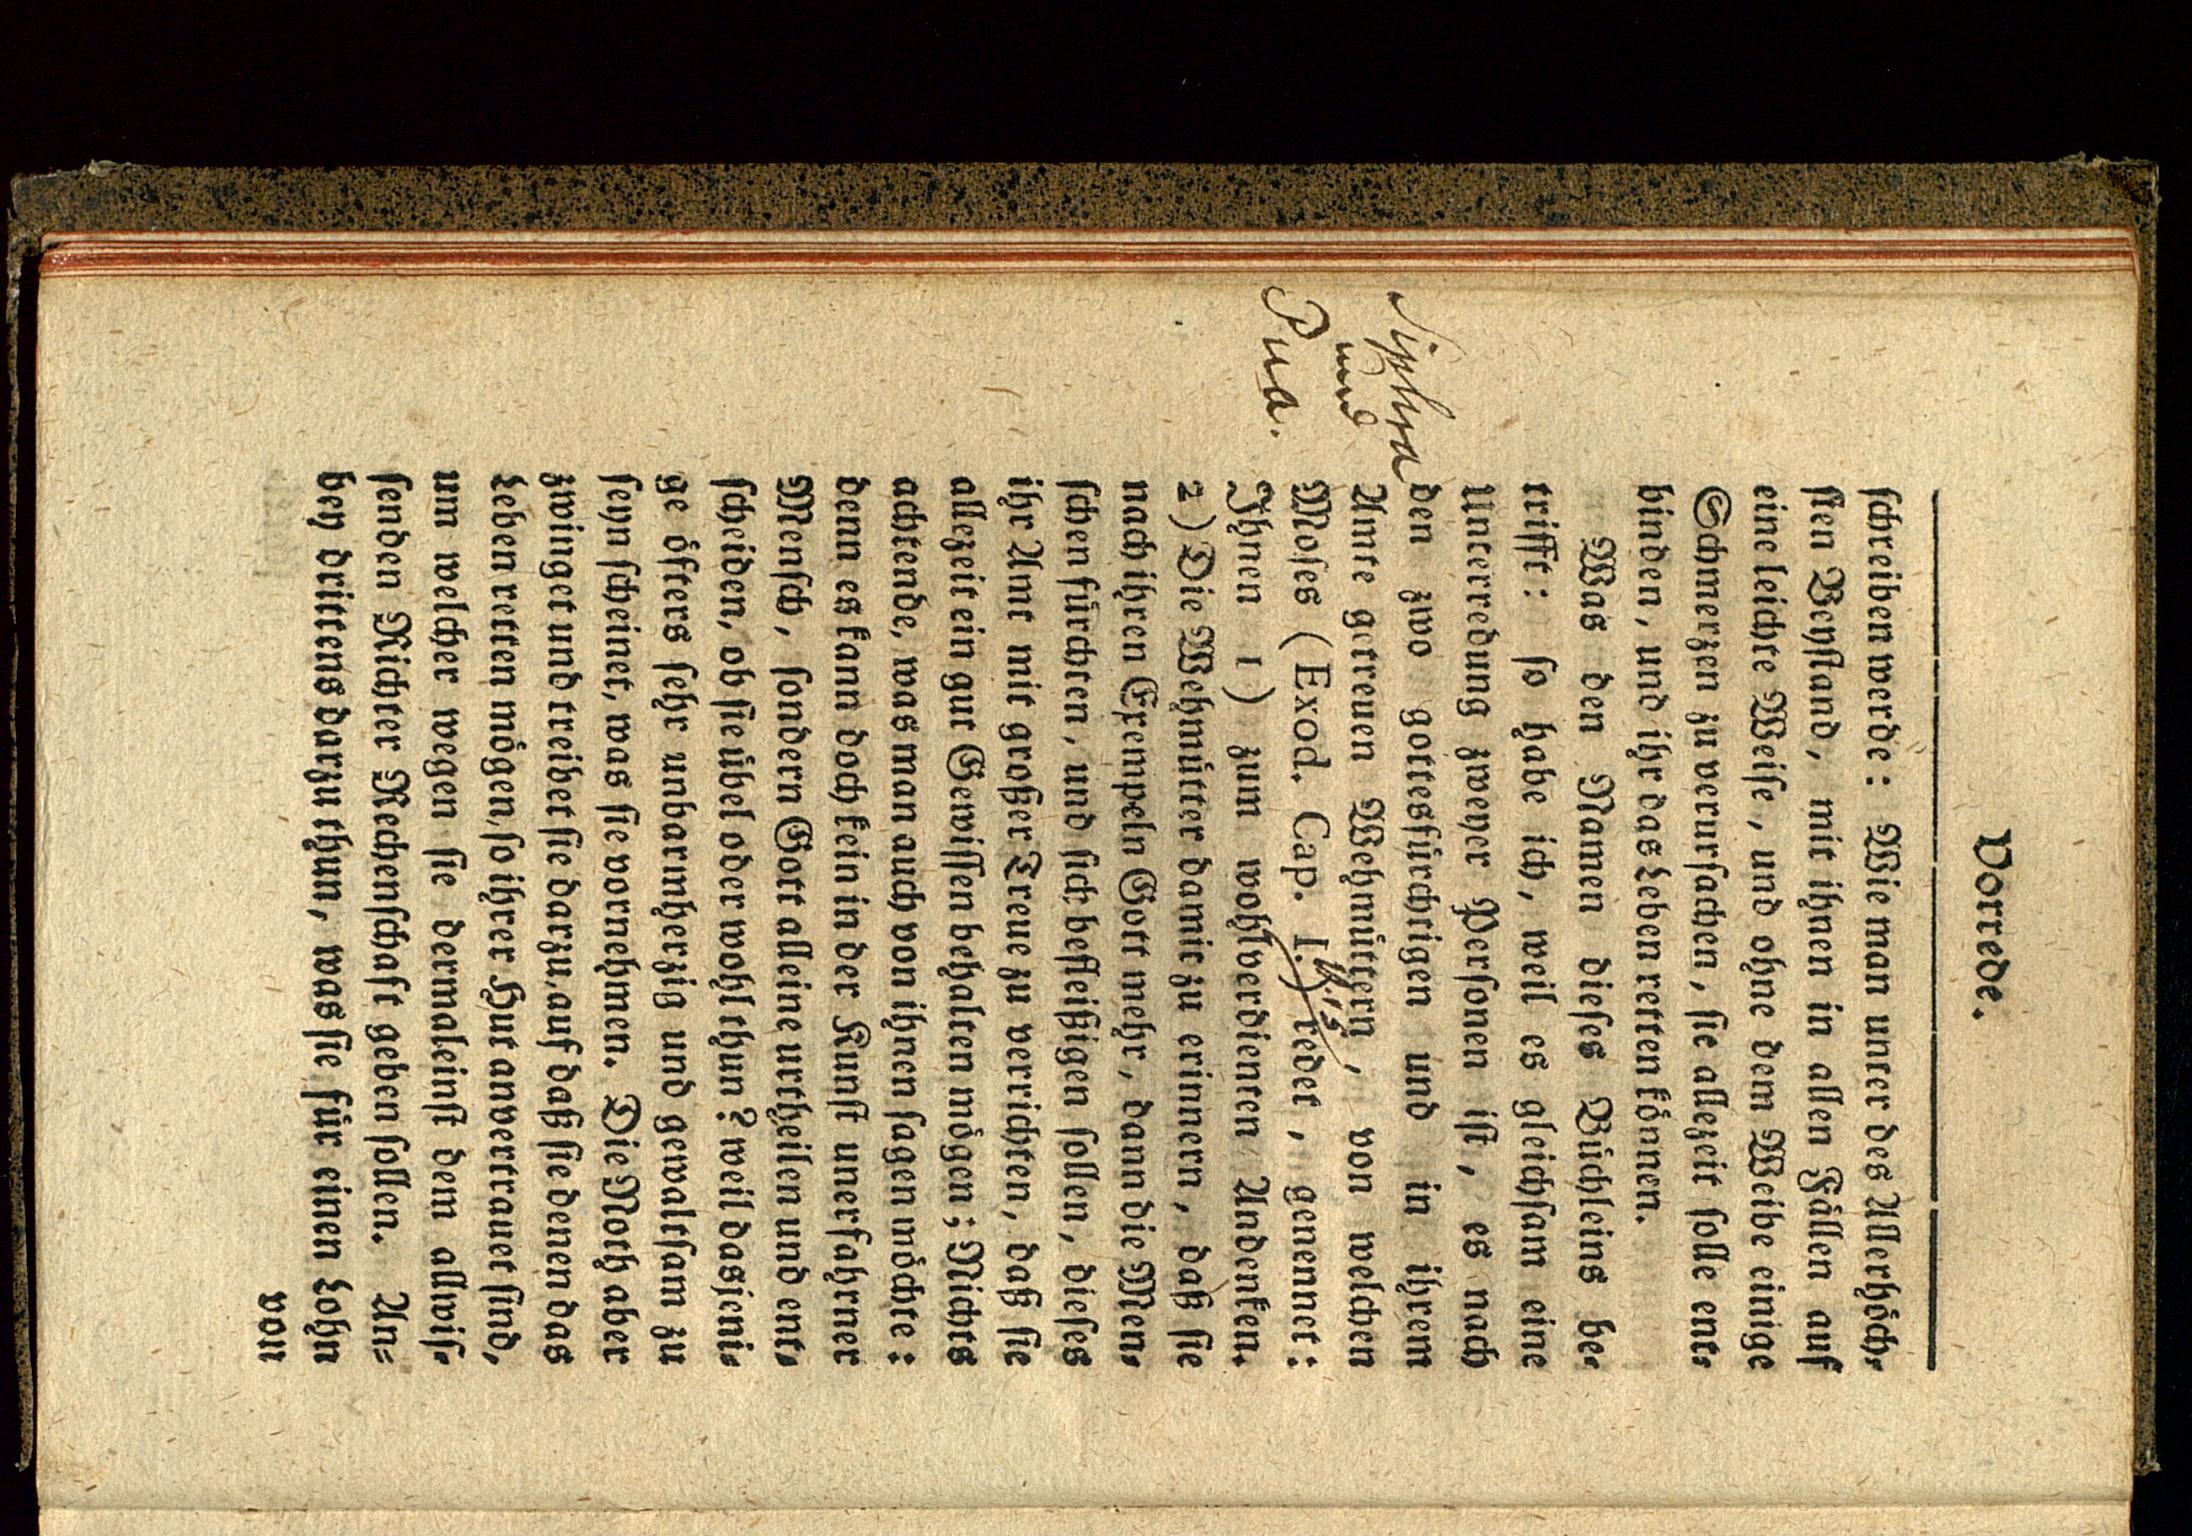 Vorrede.
schreiben werde: Wie man unter des Allerhöch-
sten Beystand, mit ihnen in allen Fällen auf
eine leichte Weise, und ohne dem Weibe einige
Schmerzen zu verursachen, sie allezeit solle ent-
binden, und ihr das Leben retten können.
Was den Namen dieses Büchleins be-
trifft: so habe ich, weil es gleichsam eine
Unterredung zweyer Personen ist, es nach
den zwo gottesfürchtigen und in ihrem
Amte getreuen Wehmüttern, von welchen
Moses (Exod. Cap. I.) redet, genennet:
Ihnen 1) zum wohlverdienten Andenken.
2) Die Wehmütter damit zu erinnern, daß sie
nach ihren Exempeln Gott mehr, dann die Men-
schen fürchten, und sich befleißigen sollen, dieses
ihr Amt mit großer Treue zu verrichten, daß sie
allezeit ein gut Gewissen behalten mögen; Nichts
achtende, was man auch von ihnen sagen möchte:
denn es kann doch kein in der Kunst unerfahrner
Mensch, sondern Gott alleine urtheilen und ent-
scheiden, ob sie übel oder wohl thun? weil dasjeni-
ge öfters sehr unbarmherzig und gewaltsam zu
seyn scheinet, was sie vornehmen. Die Noth aber
zwinget und treibet sie darzu, auf daß sie denen das
Leben retten mögen, so ihrer Hut anvertrauet sind,
um welcher wegen sie dermaleinst dem allwis-
senden Richter Rechenschaft geben sollen. An-
bey drittens darzu thun, was sie für einen Lohn
von
Siphra
und
Pua.